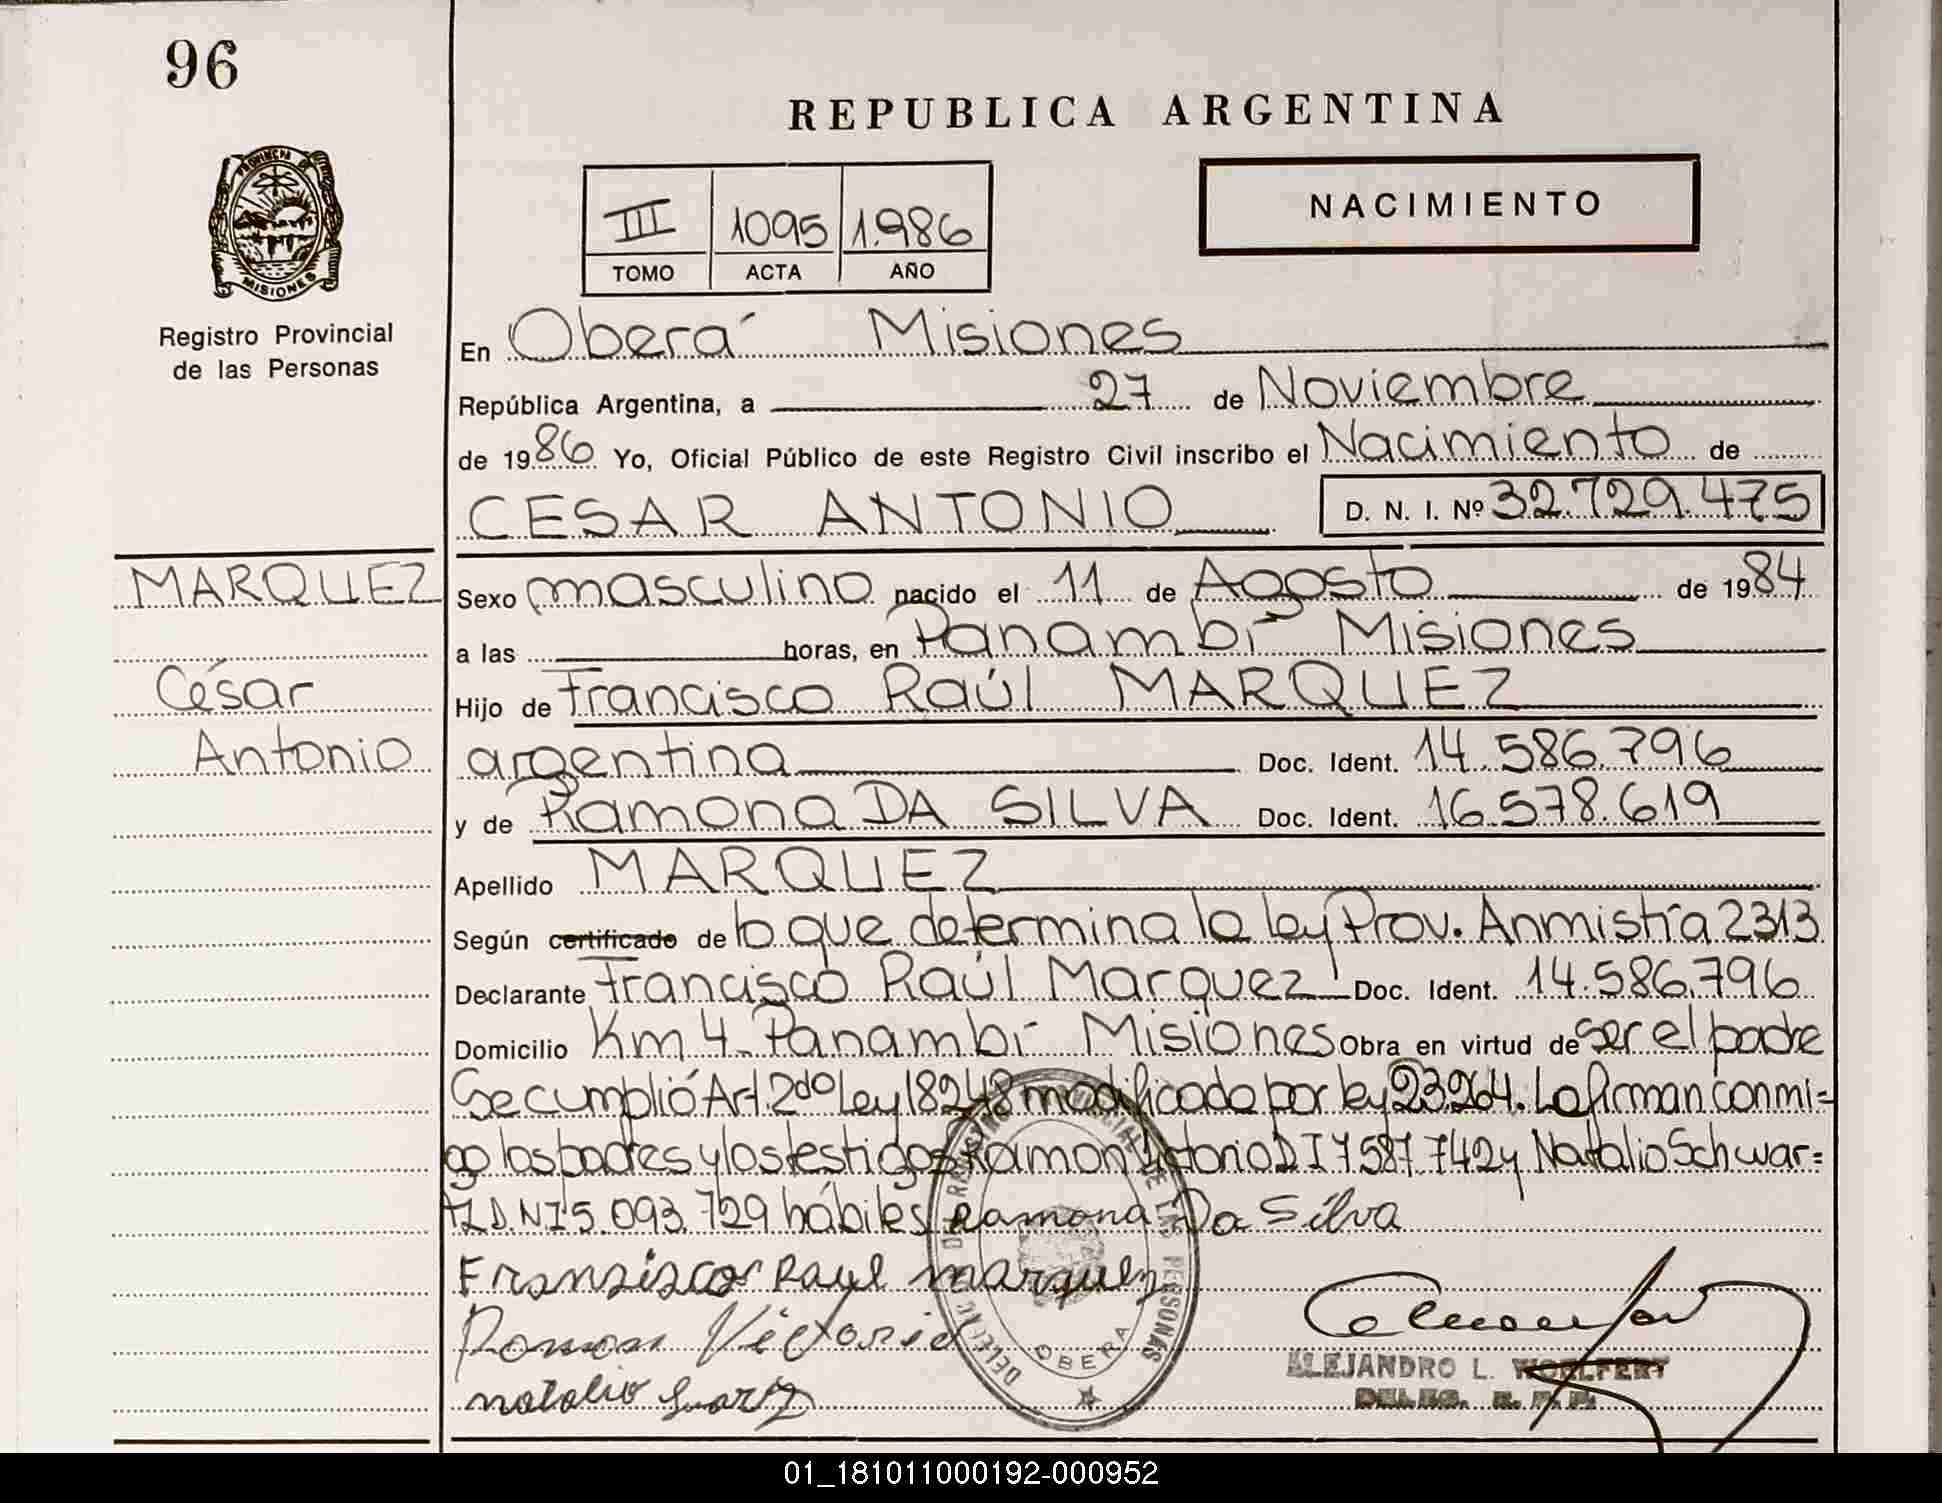 96
REPUBLICA ARGENTINA
PROVINCIA DE
MISIONES
Registro Provincial
de las Personas
III 1095 1.986
TOMO ACTA AÑO
NACIMIENTO
En Oberá Misiones
República Argentina, a 27 de Noviembre
de 1986 Yo, Oficial Público de este Registro Civil inscribo el Nacimiento de
CESAR ANTONIO D. N. I. Nº 32.729.475
MARQUEZ
César
Antonio
Sexo masculino nacido el 11 de Agosto de 1984
a las horas, en Panambí Misiones
Hijo de Francisco Raúl MARQUEZ
argentina Doc. Ident. 14.586.796
y de Ramona DA SILVA Doc. Ident. 16.578.619
Apellido MARQUEZ
Según certificado de lo que determina la ley Prov. Anmistía 2313
Declarante Francisco Raúl Marquez Doc. Ident. 14.586.796
Domicilio Km 4 Panambí Misiones Obra en virtud de ser el padre
Se cumplió Art. 2do Ley 18248 modificado por ley 23.264. La firman conmi=
go los padres y los testigos Ramon Victorio D I 7587.742 y Natalio Schwar=
tz D.N.I 5.093.729 hábiles Ramona Da Silva
Fransisco Raul marquez
Ramon Victorio
natalio
DELEG. REGISTRO PROVINCIAL DE LAS PERSONAS
OBERA
ALEJANDRO L. WOELFERT
DELEG. R. P. P.
01_181011000192-000952